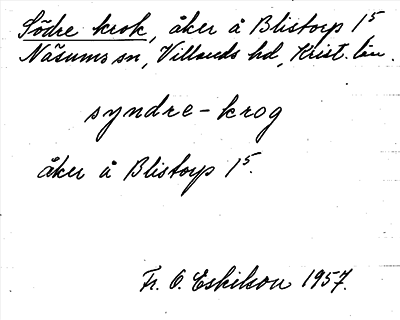 Södre krok, åker å Blistorp 1⁵
Näsums sn, Villands hd, Krist. län.
syndre-krog
åker å Blistorp 1⁵.
Fr. O. Eskilson 1957.